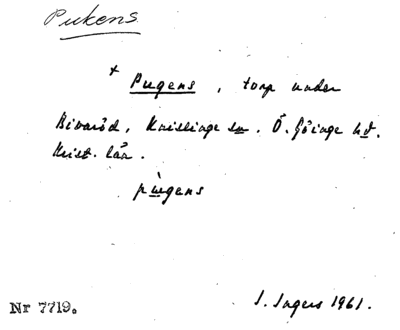 Pukens
+ Pugens, torp under
Bivaröd, Knislinge sn. Ö. Göinge hd.
Krist. län.
pùgens
Nr 7719.
I. Ingers 1961.